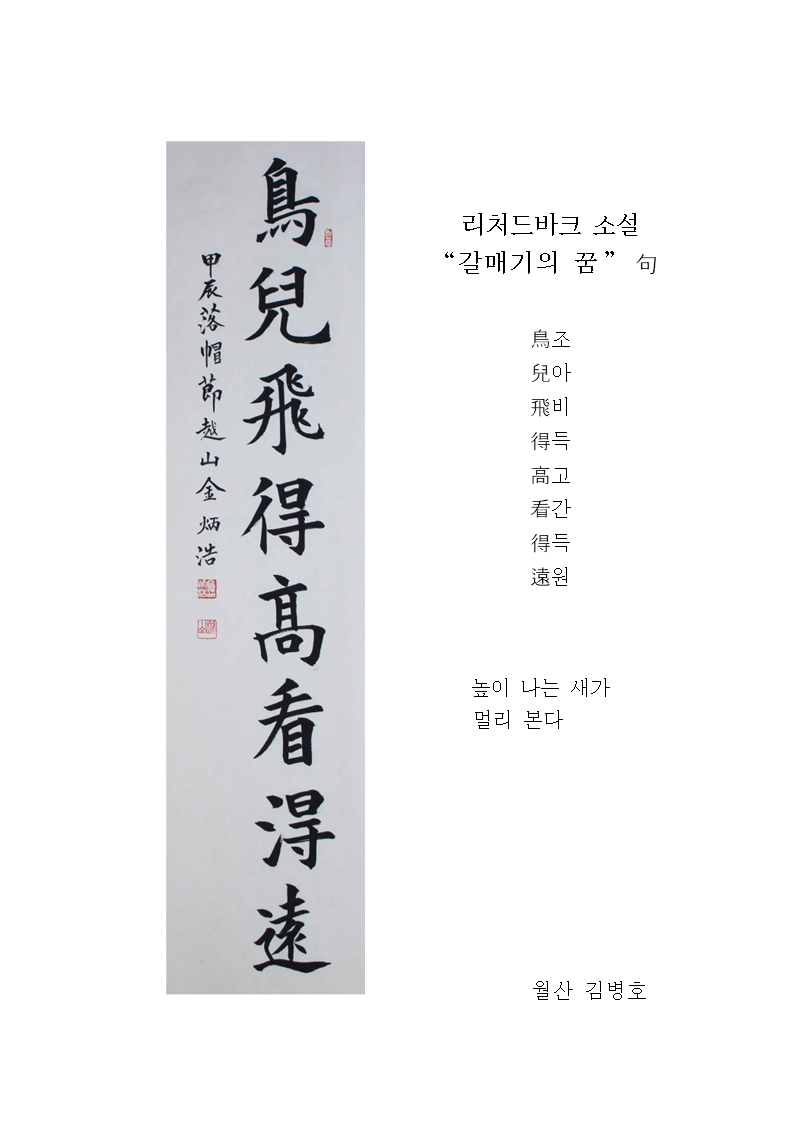 鳥兒飛得高看得遠
甲辰落帽節越山金炳浩
리처드바크 소설
“갈매기의 꿈” 句
鳥조
兒아
飛비
得득
高고
看간
得득
遠원
높이 나는 새가
멀리 본다
월산 김병호